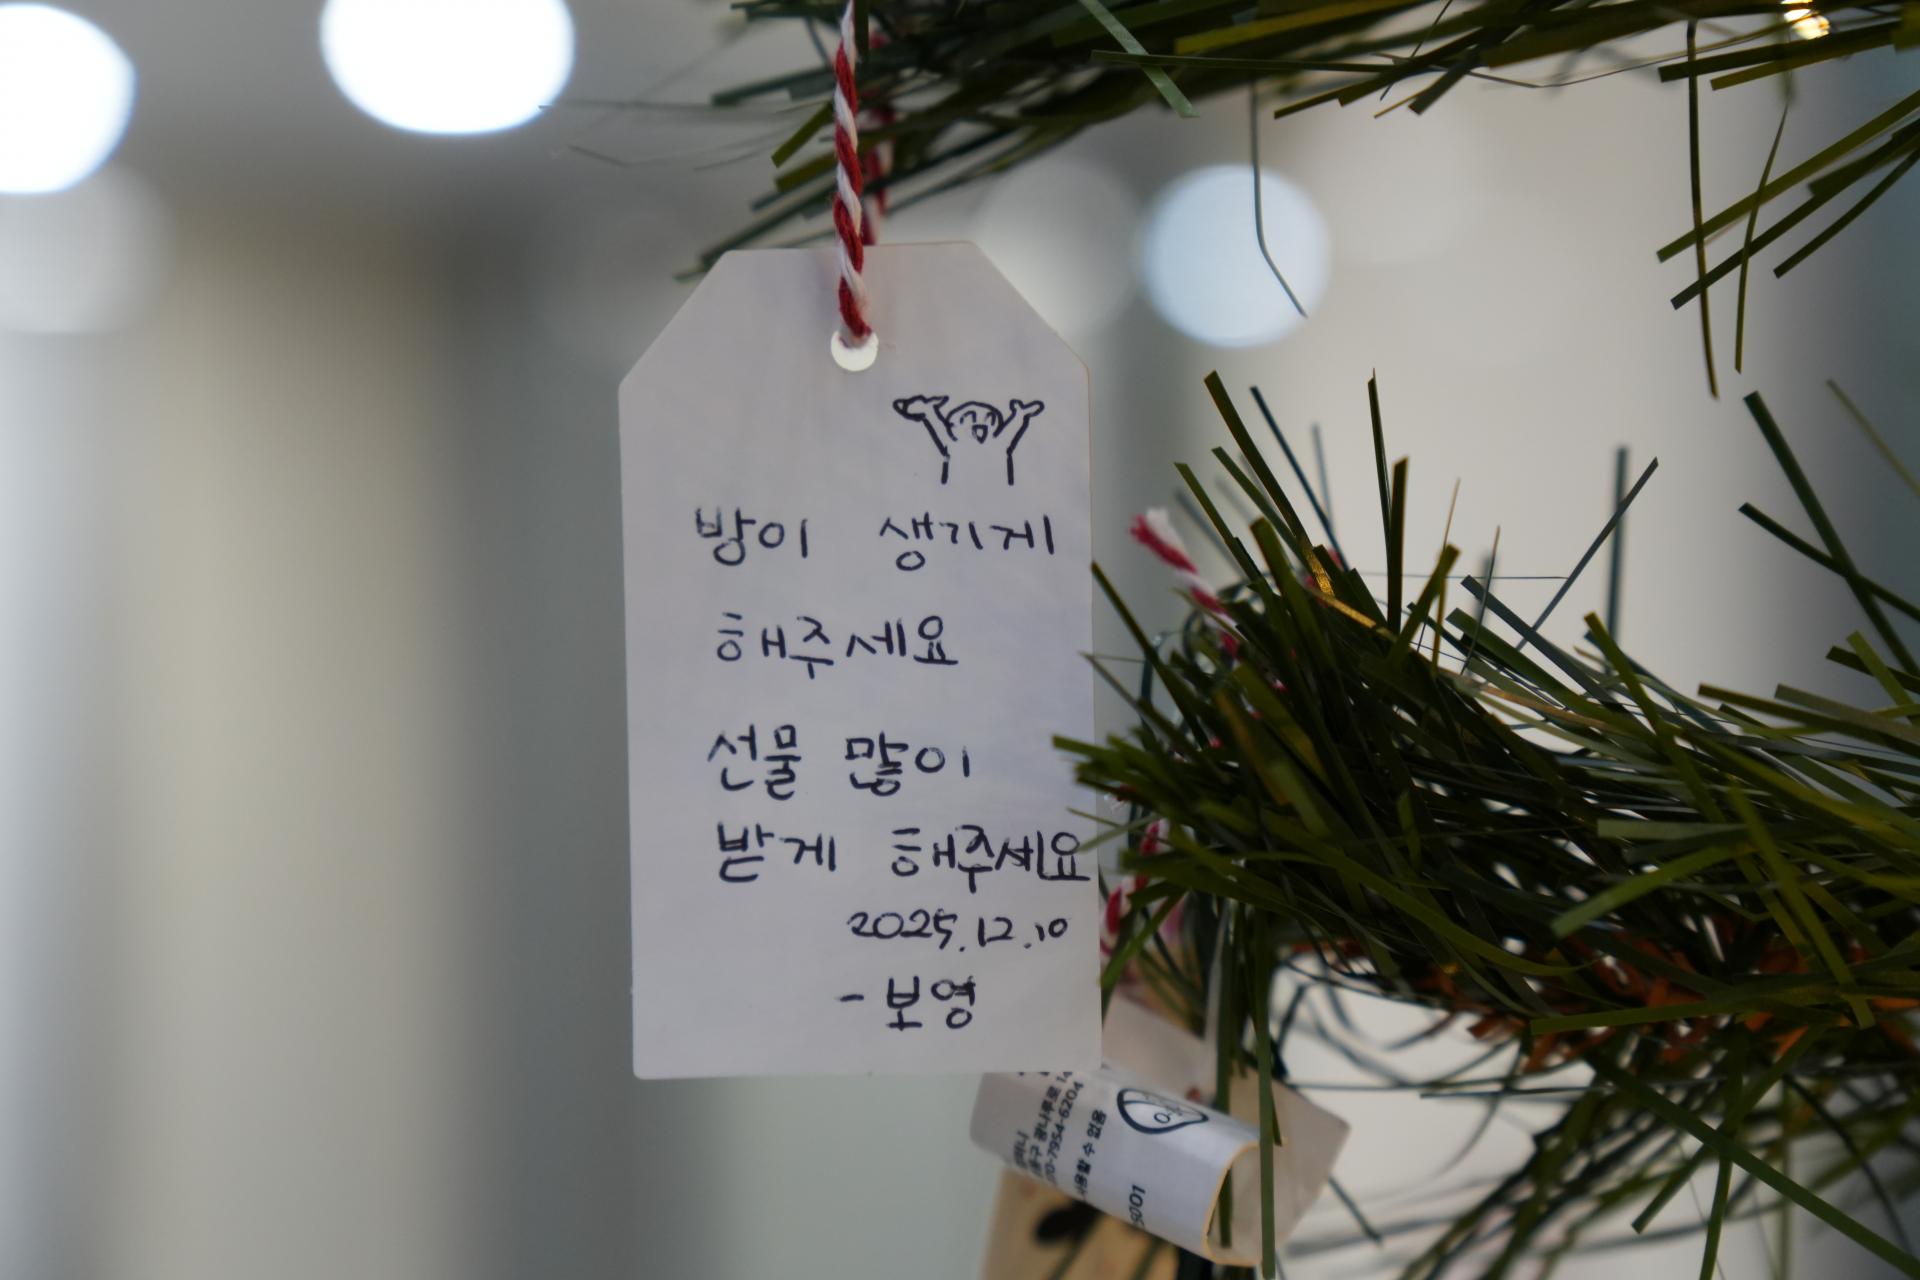 방이 생기게
해주세요
선물 많이
받게 해주세요
2025.12.10
- 보영
광나루로 14
070-7954-6204
사용할 수 없음
5001